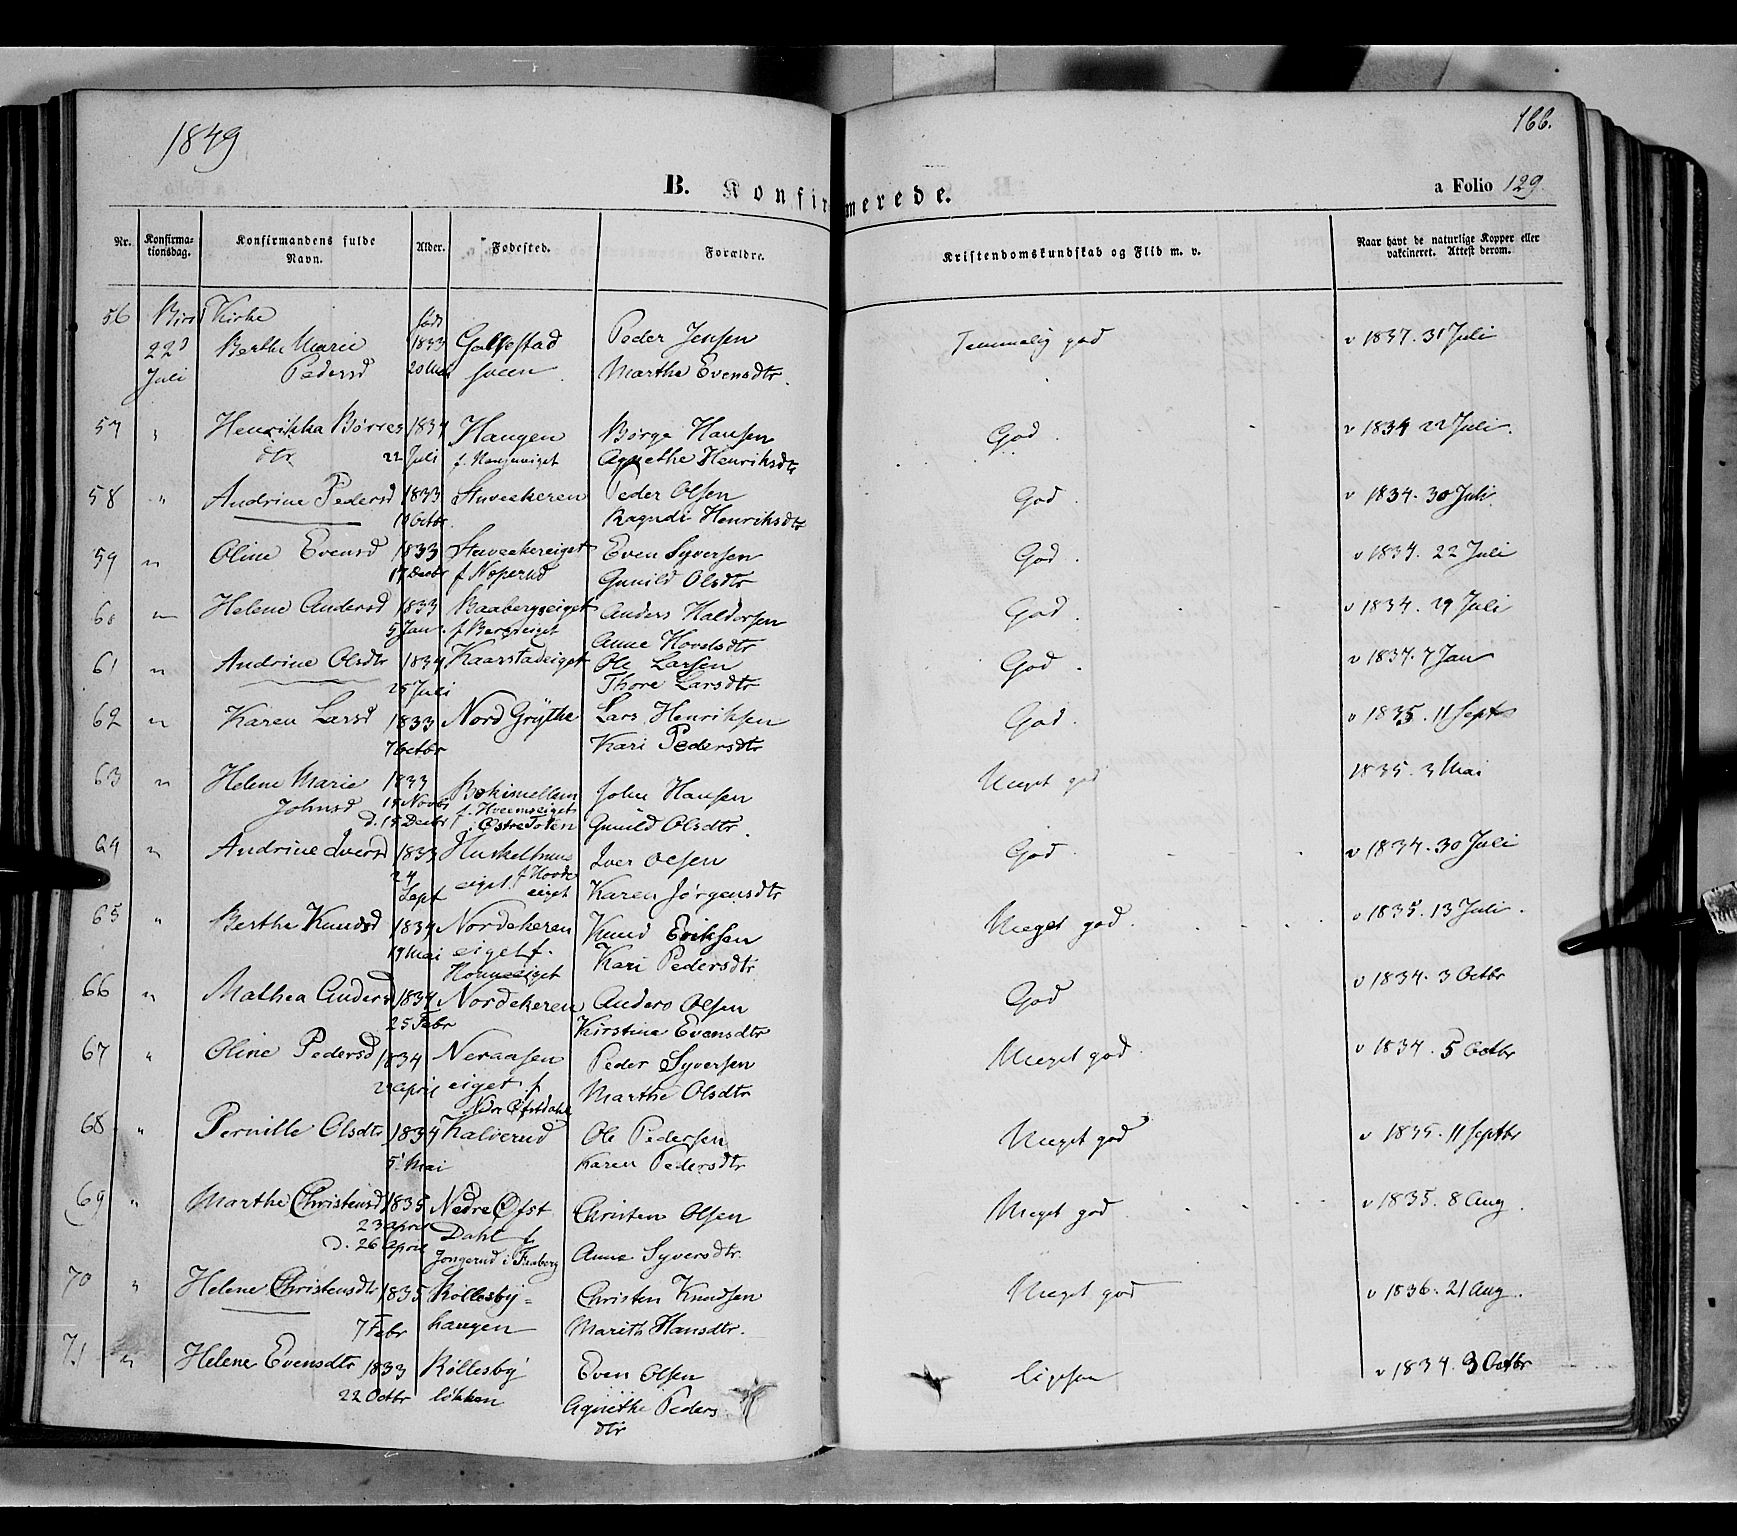 1849
166.
B. Konfirmerede.
a Folio 129.
Nr. Konfirmationsdag. Konfirmandens fulde Navn. Alder. Fødested. Forældre. Kristendomskundskab og Flid m. v. Naar havt de naturlige Kopper eller vakcineret. Attest derom.
56 Biri Kirke født
22d Berthe Marie 1833 Peder Jensen Temmelig god v 1837. 31 Juli
Juli Pedersd sveen Marthe Evensdtr.
57 " Henrikka Børres 1834 Haugen Børge Hansen God. v 1834 22 Juli.
dtr 22 Juli Agnethe Henriksdtr
58 " Andrine Pedersd 1833 Stuveekeren Peder Olsen God. v 1834. 30 Juli.
Octbr. Ragndi Henriksdtr
59 " Oline Evensd 1833 Stuveekereiget Even Syversen God. v 1834. 22 Juli
17 Decbr f. Noperud Gunild Olsdtr
60 " Helene Andersd 1833 Baabergseiget Anders Haldorsen God. v 1834. 29 Juli
5 Jan. f. Bergseiget Anne Hovelsdtr
61 " Andrine Olsdtr 1834 Kaarstadeiget Ole Larsen God. v 1837. 7 Jan
25 Juli Thore Larsdtr
62 " Karen Larsd 1833 Nord Grythe Lars Henriksen God. v 1835. 11 Sept
7 Octbr Kari Pedersdtr
63 " Helene Marie 1833 John Hansen Meget god 1835. 3 Mai
Johnsd Novbr f. Hveemseiget
d. Decbr Østre Toten Gunild Olsdtr.
64 " Andrine Iversd 1833 Iver Olsen God. v 1834. 30 Juli
24 Sept eiget Karen Jørgensdtr
65 " Berthe Knudsd 1834 Nordekeren Knud Eriksen Meget god. v 1835. 13 Juli.
19 Mai eiget f. Kari Pedersdtr
66 " Mathea Andersd 1834 Nordekeren Anders Olsen God v 1834. 3 Octbr
25 Febr Kirstine Evensdtr
67 " Oline Pedersd 1834 Neraasen Peder Syversen Meget god. v 1834. 5 Octbr
April eiget f. Marthe Olsdtr
Ndre Øfstdahl
68 " Pernille Olsdtr 1834 Kalverud Ole Pedersen Meget god v 1835. 11 Septbr
5 Mai Karen Pedersdtr
69 " Marthe Christensd 1835 Nedre Øfst Christen Olsen Meget god. v 1835. 8 Aug.
23 April Dahl f.
d. 26 April Jongerud i Faaberg Anne Syversdtr.
70 " Helene Christensdtr 1835 Røllesby- Christen Knudsen Meget god v 1836. 21 Aug.
7 Febr haugen Marith Hansdtr.
71 " Helene Evensdtr 1833 Røllesby Even Olsen ligesaa v 1834. 3 Octbr
22 Octbr løkken Agnethe Peders
dtr